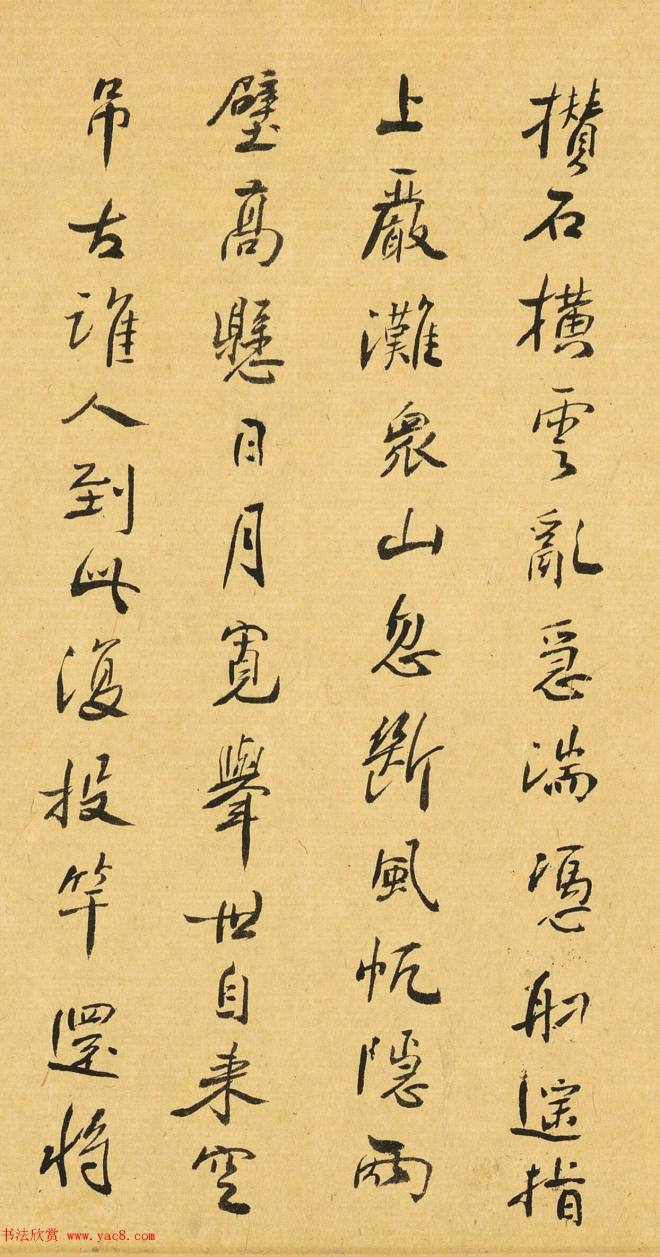 攒石横云乱急湍憑舟遥指
上嚴灘衆山忽斷風帆隱兩
壁高懸日月寬舉世自来空
吊古誰人到此復投竿還將
书法欣赏 www.yac8.com